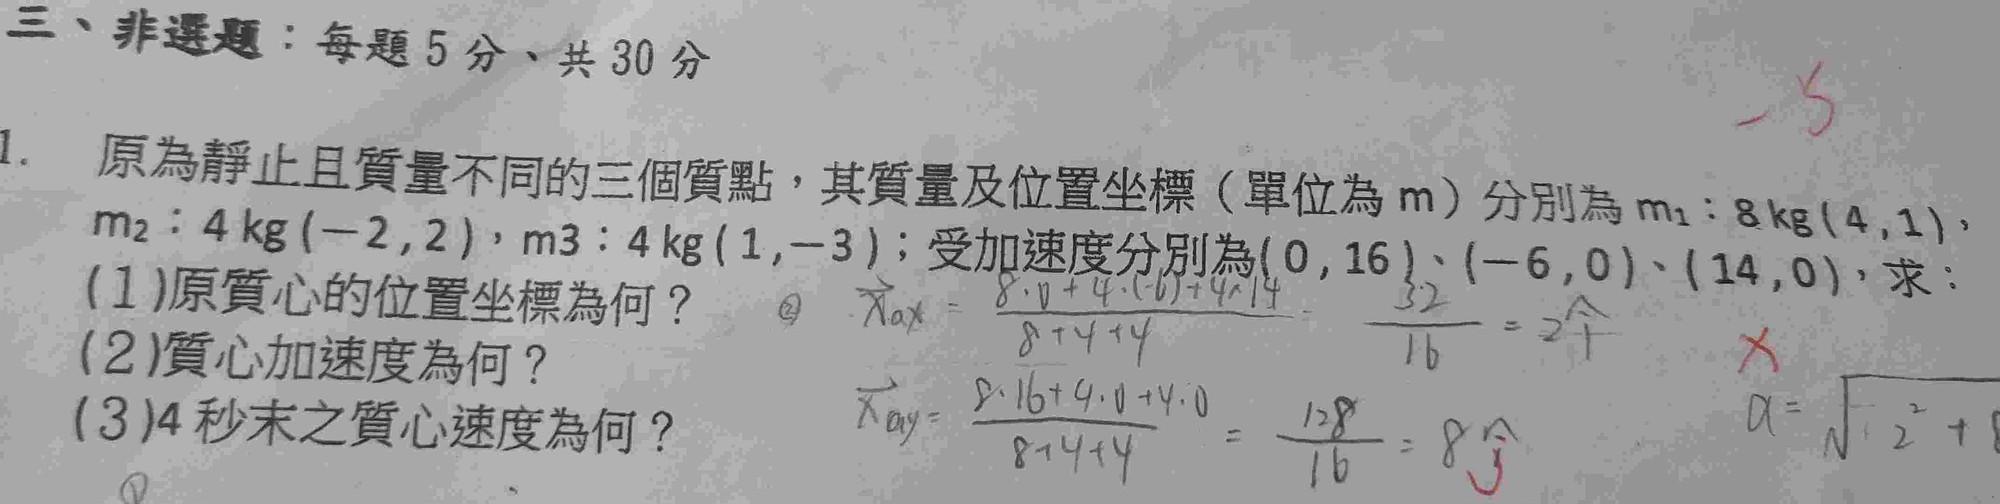 三、非選題：每題 5 分、共 30 分
-5
1. 原為靜止且質量不同的三個質點，其質量及位置坐標（單位為 m）分別為 m₁：8 kg (4 , 1)，
m₂：4 kg (－2 , 2)，m3：4 kg ( 1 ,－3 )；受加速度分別為( 0 , 16 )、(－6 , 0)、( 14 , 0)，求：
(1)原質心的位置坐標為何？
② = 8·0+4·(-6)+4·14 / 8+4+4 = 32 / 16 = 2
(2)質心加速度為何？
8·16+4·0+4·0 / 8+4+4 = 128 / 16 = 8
a = √ 2² +
(3)4 秒末之質心速度為何？
①